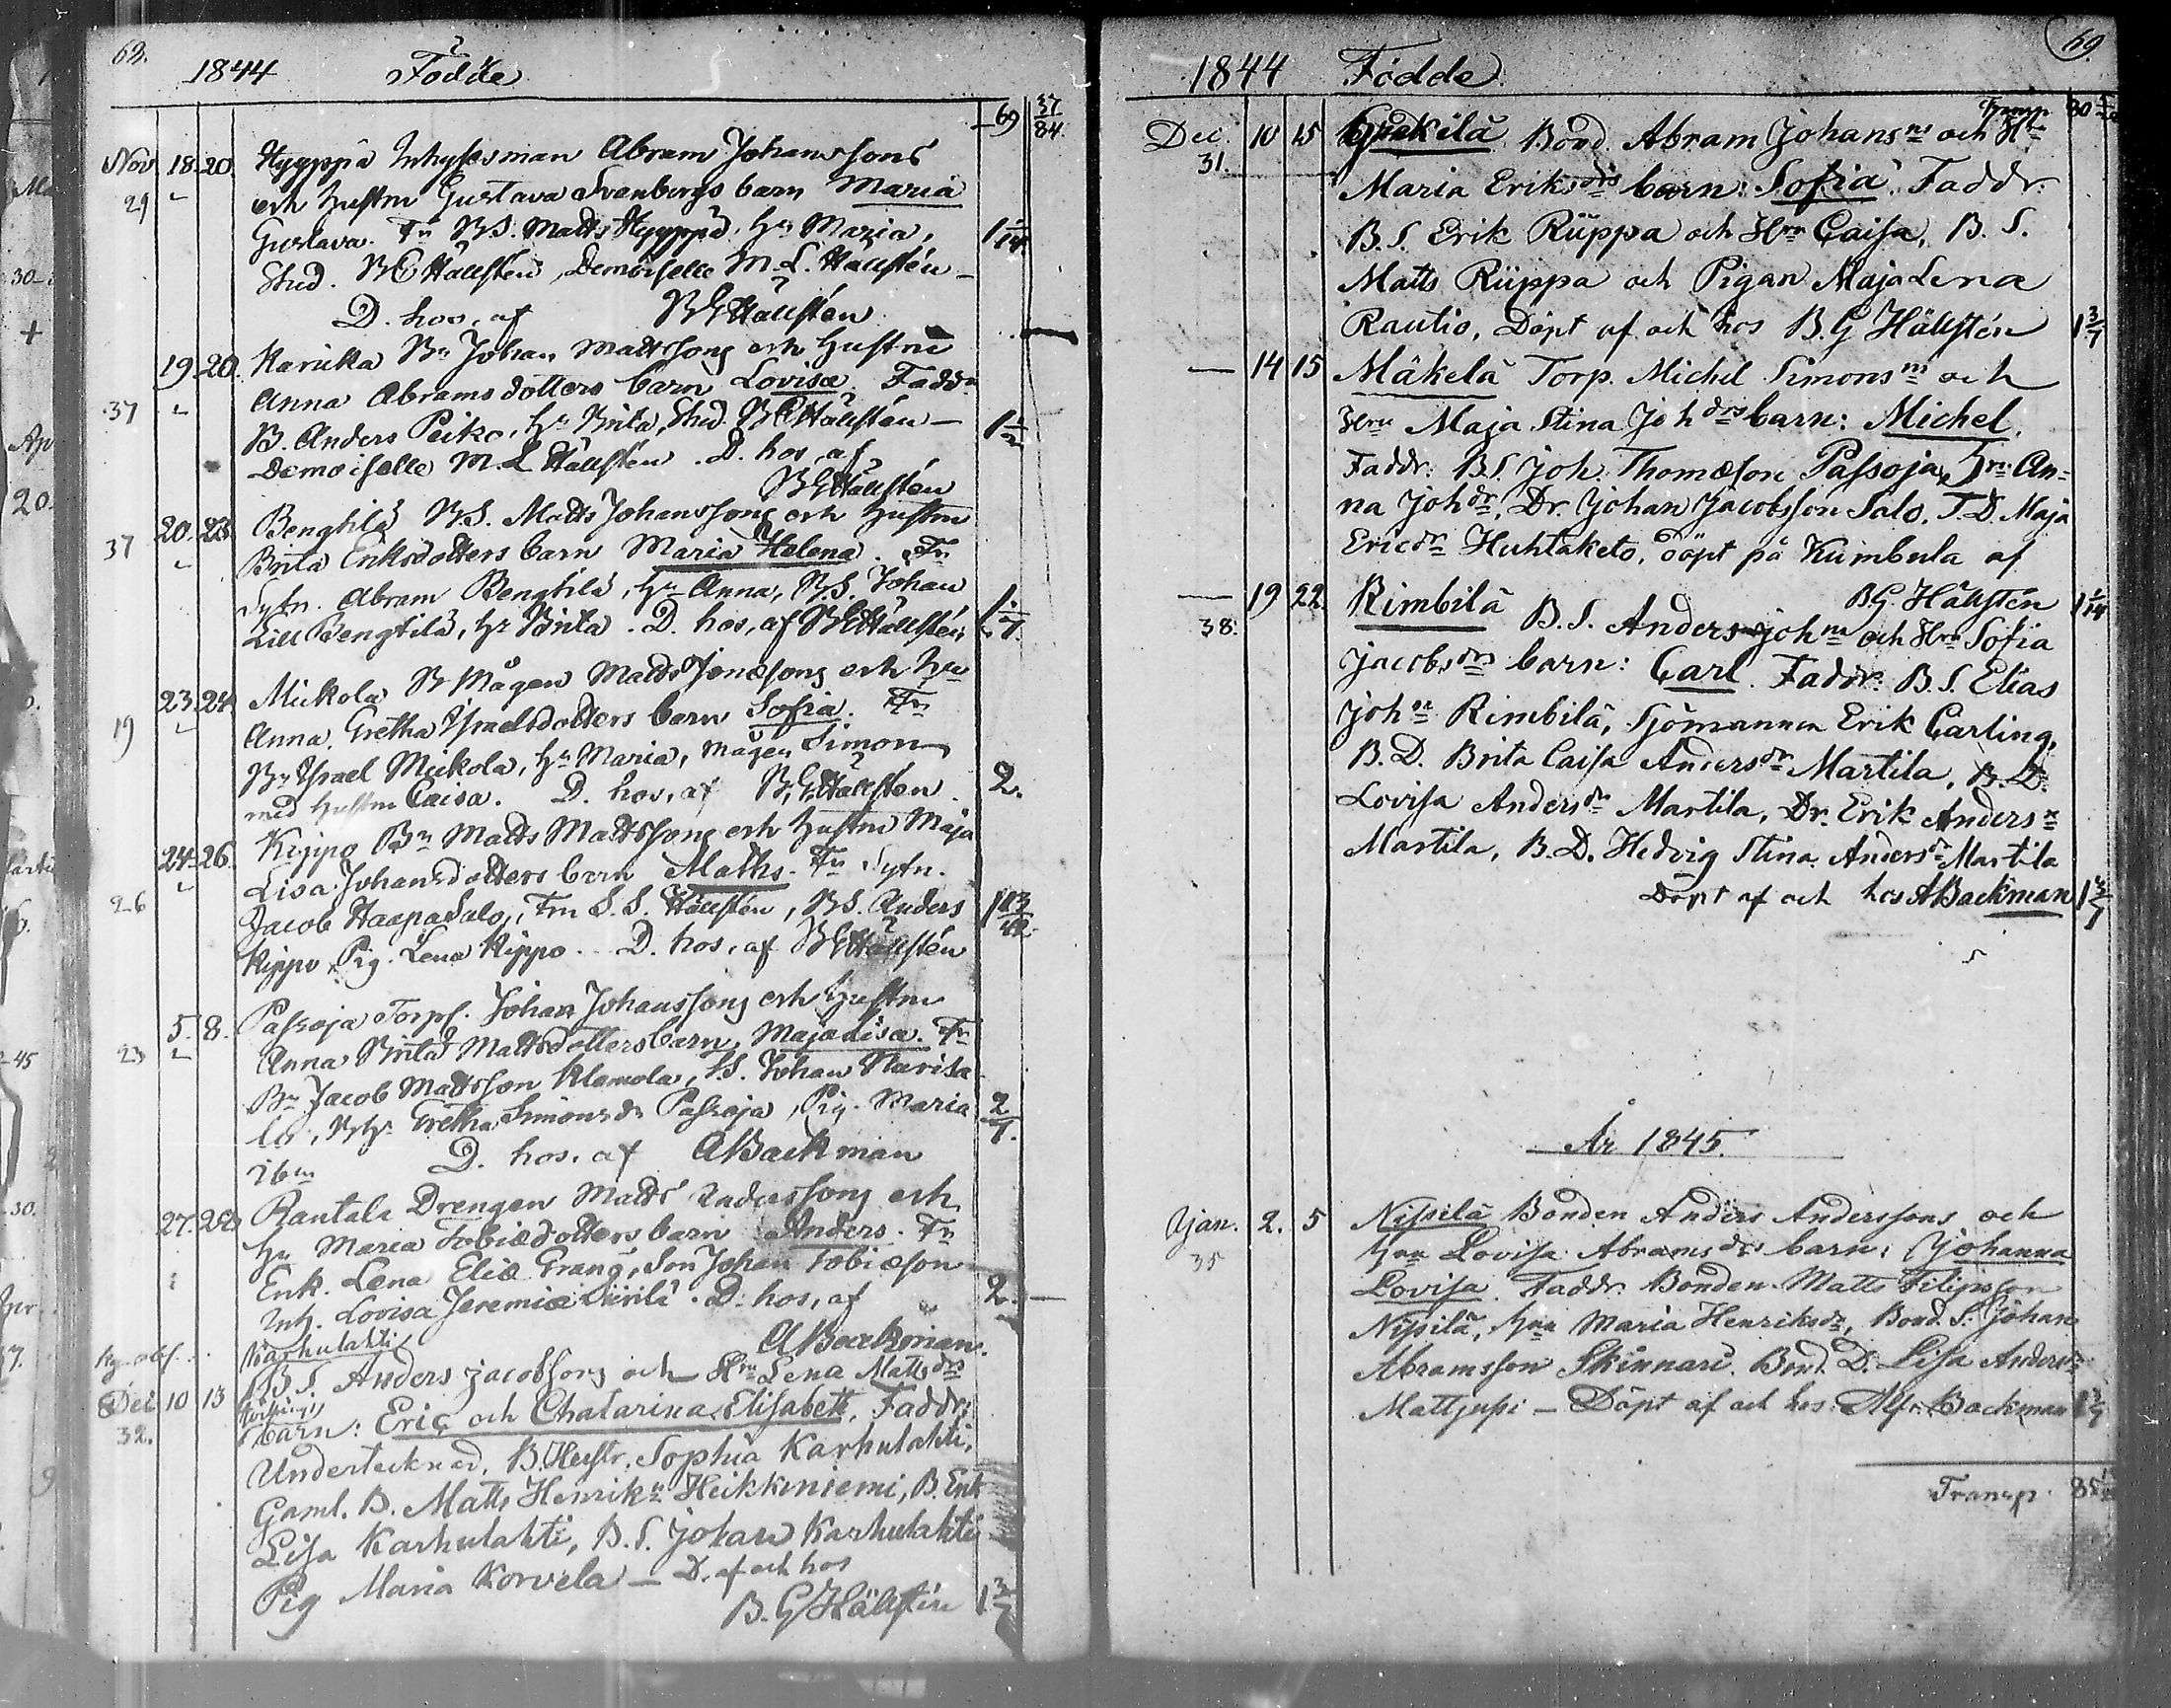 68.
1844 Födde
69 37/84
Nov 18. 20. Hyyppä Inhysesman Abram Johanssons
29 och hustru Gustava Svanbergs barn Maria
Gustava. Fr B.S. Matts Hyyppä, Hu Maria, 1 1/14
Stud. B G Hällstén, Demoiselle M. L. Hällstén
D. hos, af B G Hällstén
19. 20. Karicka Bn Johan Mattssons och hustru
37 Anna Abramsdotters barn Lovisa. Faddr
B. Anders Peiko, Hu Brita, Stud. B G Hällstén 1 1/2
Demoiselle M. L Hällstén. D. hos, af
B G Hällstén
20. 23. Bengtilä B.S. Matts Johanssons och hustru
37 Brita Eriksdotters barn Maria Helena. Fr
Sytn. Abram Bengtilä, Hu Anna, B.S. Johan
Lill Bengtilä, Hu Brita. D. hos, af B G Hällstén
23. 24. Mickola B Mågen Matts Jonæsons och Hu
19 Anna Gretha Israelsdotters barn Sofia. Fr
Bn Israel Mickola, Hu Maria, Mågen Simon
med hustru Caisa. D. hos, af B G Hällstén. 2.
24. 26. Kippo Bn Matts Mattssons och hustru Maja
26 Lisa Johansdotters barn Matts. Fr Sytn.
Jacob Haapasalo, Fru S. S. Hällstén, B.S. Anders
Kippo, Pig. Lena Kippo. D. hos, af B G Hällstén
5. 8. Passoja Torps. Johan Johanssons och hustru
23 Anna Brita Mattsdotters barn Maja Lisa. Fr
Bn Jacob Mattsson Klemola, S.S. Johan
B.Hu Gretha Simonsdr Passoja, Pig. Maria 2/7.
ibm D. hos. af A Backman
27. 28. Rantala Drengen Matts Anderssons och
Hu Maria Tobiædotters barn Anders. Fr
Enk. Lena Eliæ Grang, Son Johan Tobiæson
Inh. Lovisa Jeremiæ Viirilä. D. hos, af 2.
A Backman.
Karhulahti
Dec 10 13 B.S. Anders Jacobssons och Hru Lena Mattsdrs
32. tvillingr barn: Eric och Chatarina Elisabeth, Faddr:
Undertecknad, B.Hustr. Sophia Karhulahti,
Gaml. B. Matts Henriksn Heikkiniemi, B. Enk
Lisa Karhulahti, B.S. Johan Karhulahti
Pig Maria Korvela — D. af och hos
B. G Hällstén 1 3/7
69.
1844 Födde
Transp 80
Dec. 10 15 Gpekilä Bond. Abram Johansns och Hru
31. Maria Eriksdrs barn: Sofia. Faddr:
B.S. Erik Rüppa och Hru Caisa, B. S.
Matts Rüppa och Pigan Maja Lena
Rautio, Döpt af och hos B. G Hällstén 1 3/7
— 14 15 Mäkelä Torp. Michel Simonsns och
Hru Maja Stina Johdrs barn: Michel.
Faddr: B.S. Joh. Thomæson Passoja, Hru An-
na Johdr, Dr. Johan Jacobsson Salo, T. D. Maja
Ericdr Huhtaketo, döpt på Kumbula af
B G. Hällstén 1 1/14
— 19 22. Rimbilä B.S. Anders Johns och Hru Sofia
38. Jacobsdrs barn: Carl. Faddr: B.S. Elias
Johsn Rimbilä, Sjömannen Erik Carling,
B. D. Brita Caisa Andersdr Martila, B. D.
Lovisa Andersdr Martila, Dr. Erik Andersn
Martila, B. D. Hedvig Stina Andersdr Martila
Döpt af och hos A Backman 1 3/7
År 1845.
Jan. 2. 5 Nissilä Bonden Anders Anderssons och
35 Hru Lovisa Abramsdrs barn: Johanna
Lovisa. Faddr. Bonden Matts Filipsson
Nissilä, Hru Maria Henriksdr, Bond. S. Johan
Abramsson Skinnari. Bond. D. Lisa Andersdr
Mattjupi — Döpt af och hos Alfr. Backman 1 3/7
Transp. 85